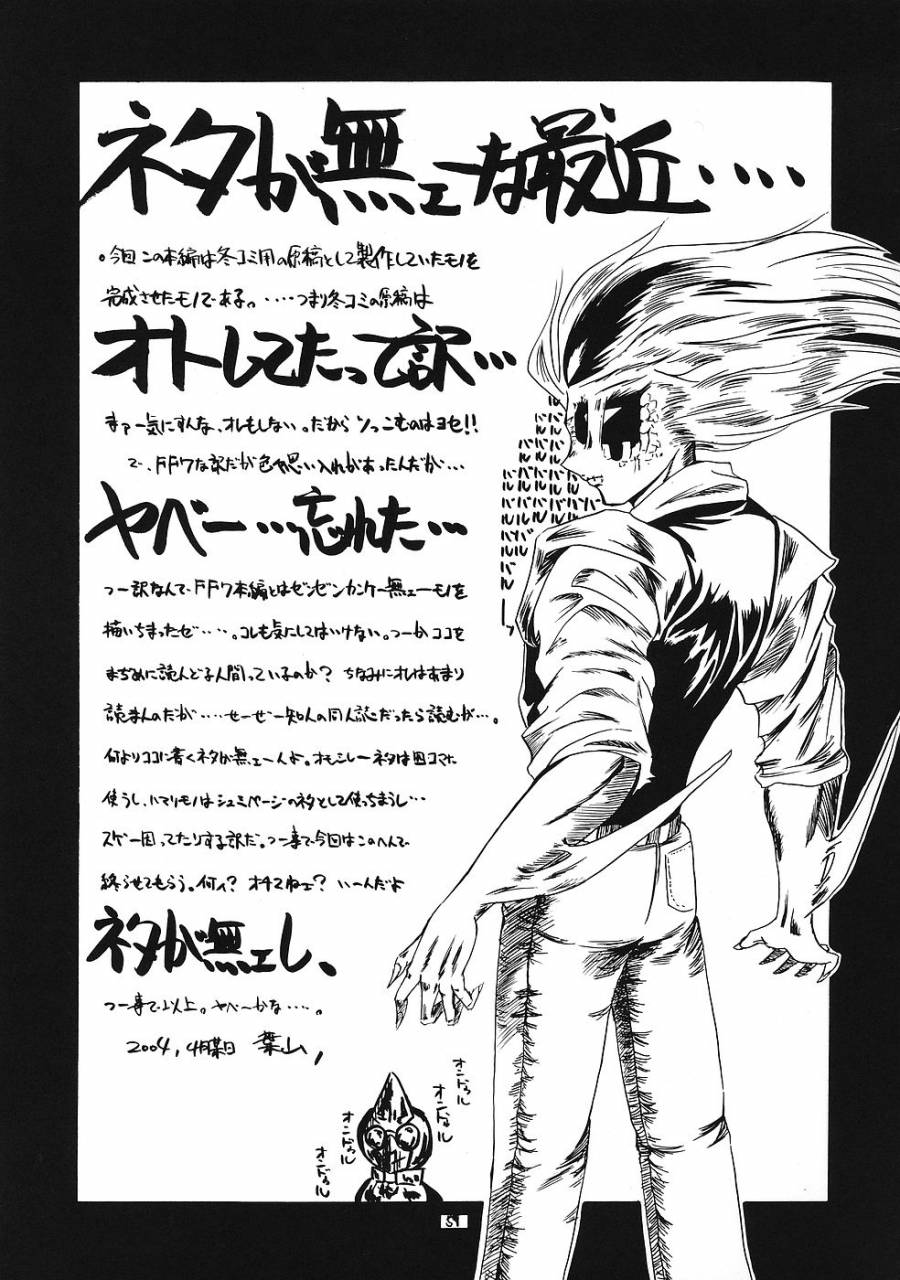 ネタが無ェーな最近‥‥
。今回この本編は冬コミ用の原稿として製作していたモノを
完成させたモノである。‥‥つまり冬コミの原稿は
オトしてたって訳…
まァ一気にすんな、オレもしない。だからツっこむのはヨセ!!
で、FF7な訳だが色々思い入れがあったんだが…
ヤベー…忘れた…
つー訳なんで、FF7本編とはゼンゼンカンケー無ェーモノを
描いちまったぜ‥‥。コレも気にしてはいけない。つーかココを
まぢめに読んどる人間っているのか? ちなみにオレはあまり
読まんのだが‥‥せーぜー知人の同人誌だったら読むが…。
何よりココに書くネタが無ェーんよ。オモシレーネタは四コマに
使うし、ハマリモノはシュミページのネタとして使っちまうし…
スゲー困ってたりする訳だ。つー事で今回はこのへんで
終らせてもらう。何ィ? オチてねェ? いーんだよ
ネタが無ェし、
つー事で以上。ヤベーかな‥‥。
2004,4月某日 葉山,
バルバルバルバルバルバルバルバルバルバルバルバルバルバルバルバルバルバルバルバル
オンドゥル
オンドゥル
オンドゥル
オンドゥル
51